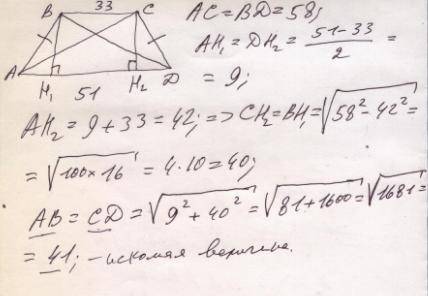 B 33 C
A H₁ 51 H₂ D
AC = BD = 58;
AH₁ = DH₂ = (51-33)/2 =
= 9;
AH₂ = 9 + 33 = 42; => CH₂ = BH₁ = √(58² - 42²) =
= √(100×16) = 4·10 = 40;
AB = CD = √(9² + 40²) = √(81 + 1600) = √1681 =
= 41; - искомая величина.